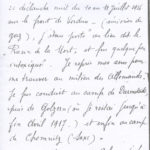 nuit du 10 au 11 juillet 1916
sur le front de Verdun (émission de
gaz), j'étais posté au lieu dit le
"Ravin de la Mort", et fus quelque peu
intoxiqué. Je repris mes sens pour
me trouver au milieu des Allemands.
Je fus conduit au camp de Darmstadt
puis de (où je restai jusqu'à
fin Août 1917) et enfin au camp
de Chemnitz (Saxe).